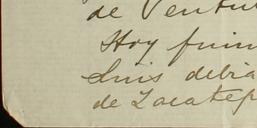 de Ventu
Hoy fuim
Luis debia
de Zacatep